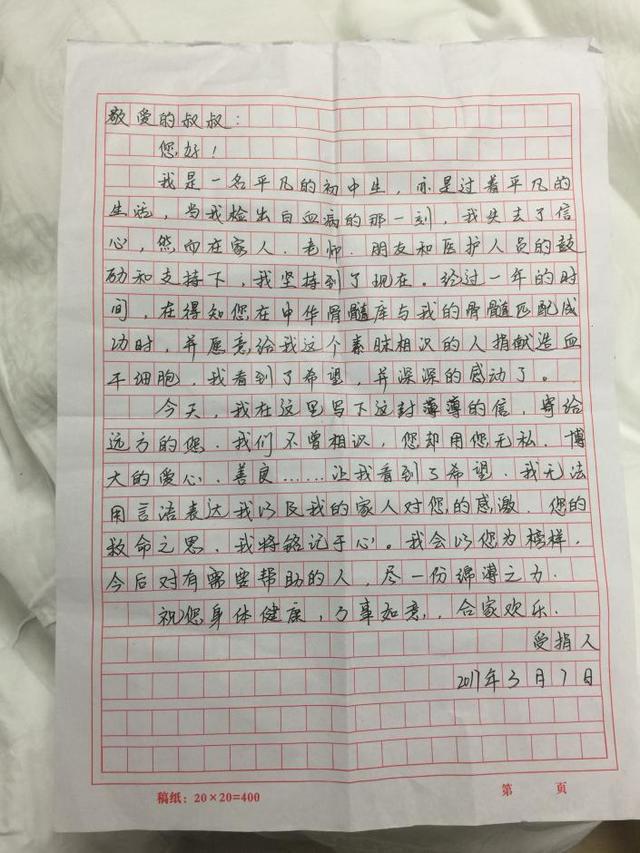 敬爱的叔叔：
您好！
我是一名平凡的初中生，亦是过着平凡的
生活，当我检出白血病的那一刻，我失去了信
心，然而在家人、老师、朋友和医护人员的鼓
励和支持下，我坚持到了现在。经过一年的时
间，在得知您在中华骨髓库与我的骨髓匹配成
功时，并愿意给我这个素昧相识的人捐献造血
干细胞，我看到了希望，并深深的感动了。
今天，我在这里写下这封薄薄的信，寄给
远方的您．我们不曾相识，您却用您无私、博
大的爱心、善良……让我看到了希望．我无法
用言语表达我以及我的家人对您的感激．您的
救命之恩．我将铭记于心。我会以您为榜样，
今后对有需要帮助的人，尽一份绵薄之力．
祝您身体健康，万事如意，合家欢乐．
受捐人
2017年3月7日
稿纸：20×20=400
第 页